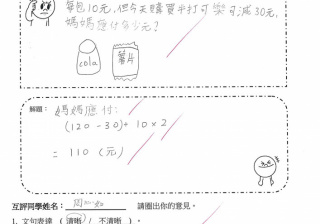 單包10元，但今天購買半打可樂可減30元，
媽媽應付多少元？
cola
薯片
解題：媽媽應付：
(120-30)+10×2
=110(元)
互評同學姓名： 請圈出你的意見。
1. 文句表達（清晰 / 不清晰）。